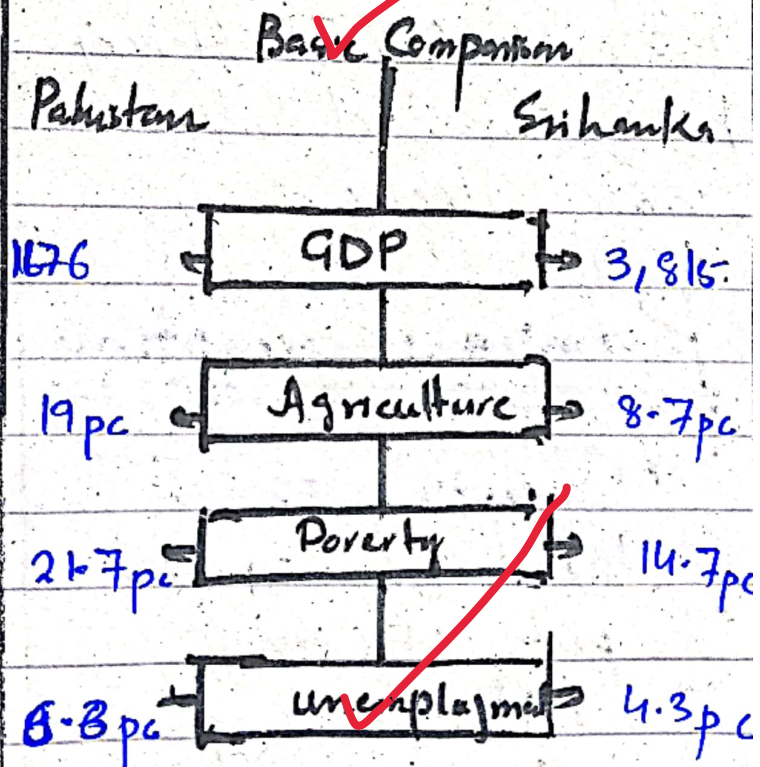 Basic Comparison
Pakistan Srilanka
1676 GDP 3,815
19pc Agriculture 8.7pc
21.7pc Poverty 14.7pc
pc unemployment 4.3pc